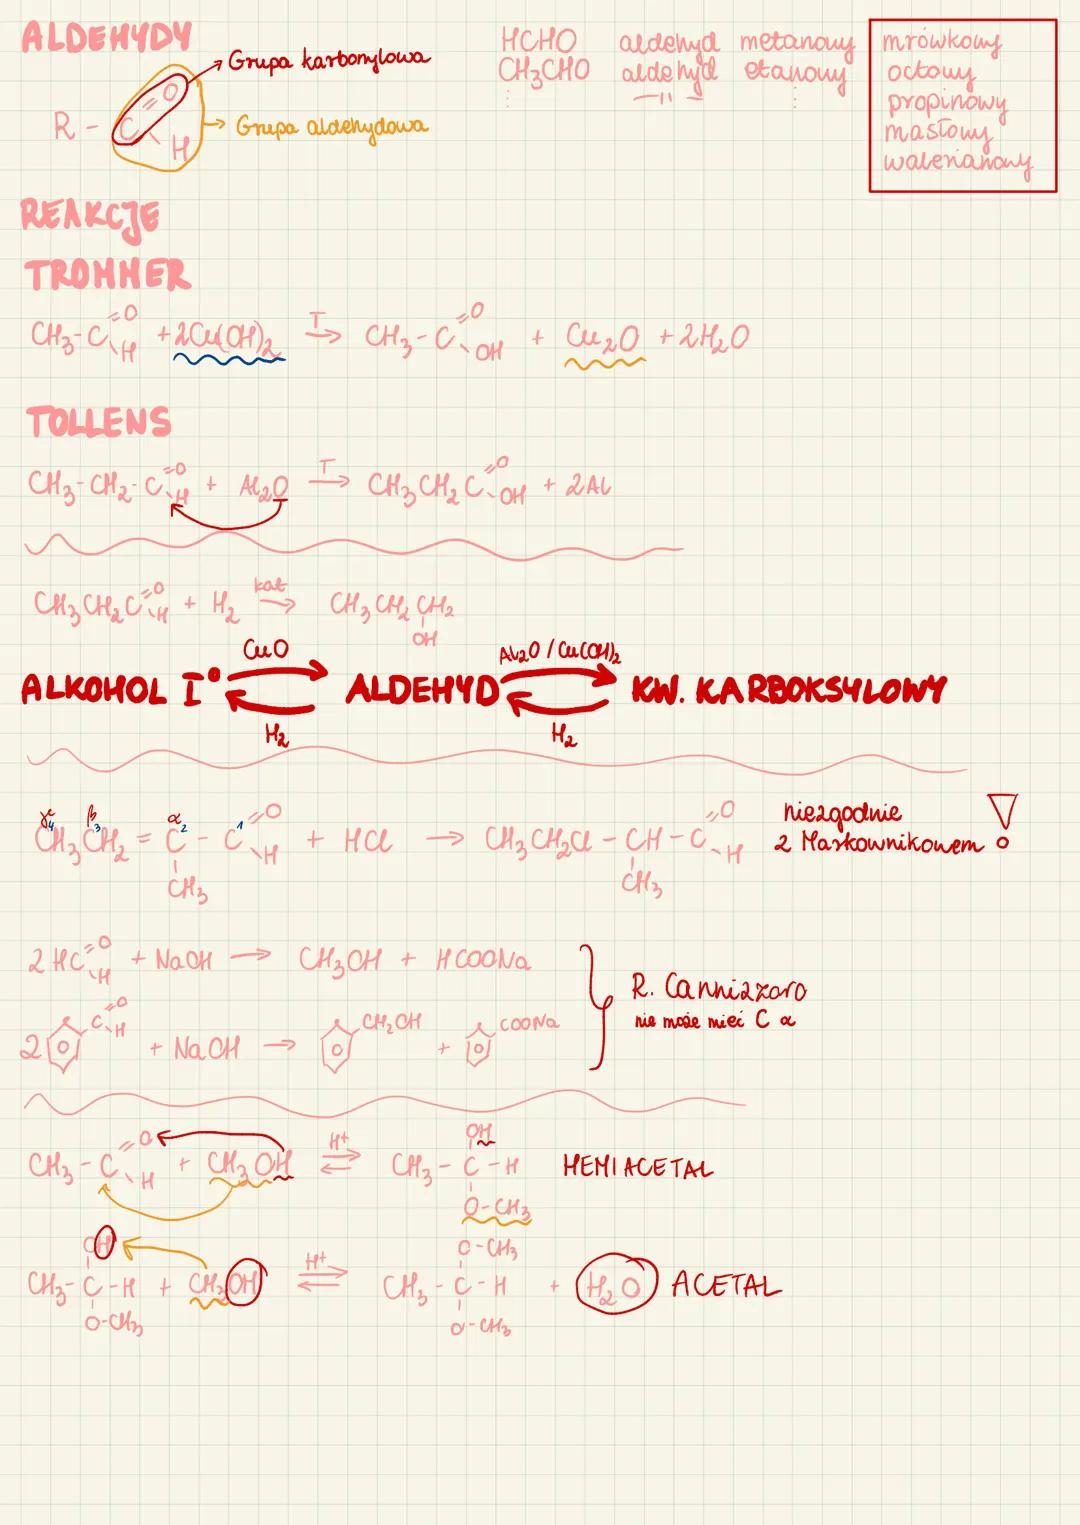 ALDEHYDY
R - C =O \ H
Grupa karbonylowa
Grupa aldehydowa
HCHO aldehyd metanowy
CH3CHO aldehyd etanowy
⋮ —11— ⋮
mrówkowy
octowy
propinowy
masłowy
walerianowy
REAKCJE
TROMMER
CH3-C =O \H +2Cu(OH)2 T → CH3-C =O \OH + Cu2O +2H2O
TOLLENS
CH3-CH2-C =O \H + Al2O T → CH3CH2C =O \OH + 2Al
CH3CH2C =O \H + H2 kat → CH3CH2CH2
OH
CuO Al2O / Cu(OH)2
ALKOHOL I° ⇄ ALDEHYD ⇄ KW. KARBOKSYLOWY
H2 H2
γ4 β3 α2 1
CH3CH2 = C - C =O \H + HCl → CH3CH2Cl - CH - C =O \H
CH3 CH3
niezgodnie
z Markownikowem
2 HC =O \H + NaOH → CH3OH + HCOONa
2 C =O \H + NaOH → CH2OH + COONa
R. Cannizzaro
nie może mieć C α
CH3 - C =O \H + CH3OH H+ ⇄ CH3 - C - H HEMIACETAL
OH
O-CH3
OH O-CH3
CH3- C -H + CH3OH H+ ⇄ CH3 - C - H + H2O ACETAL
O-CH3 O-CH3